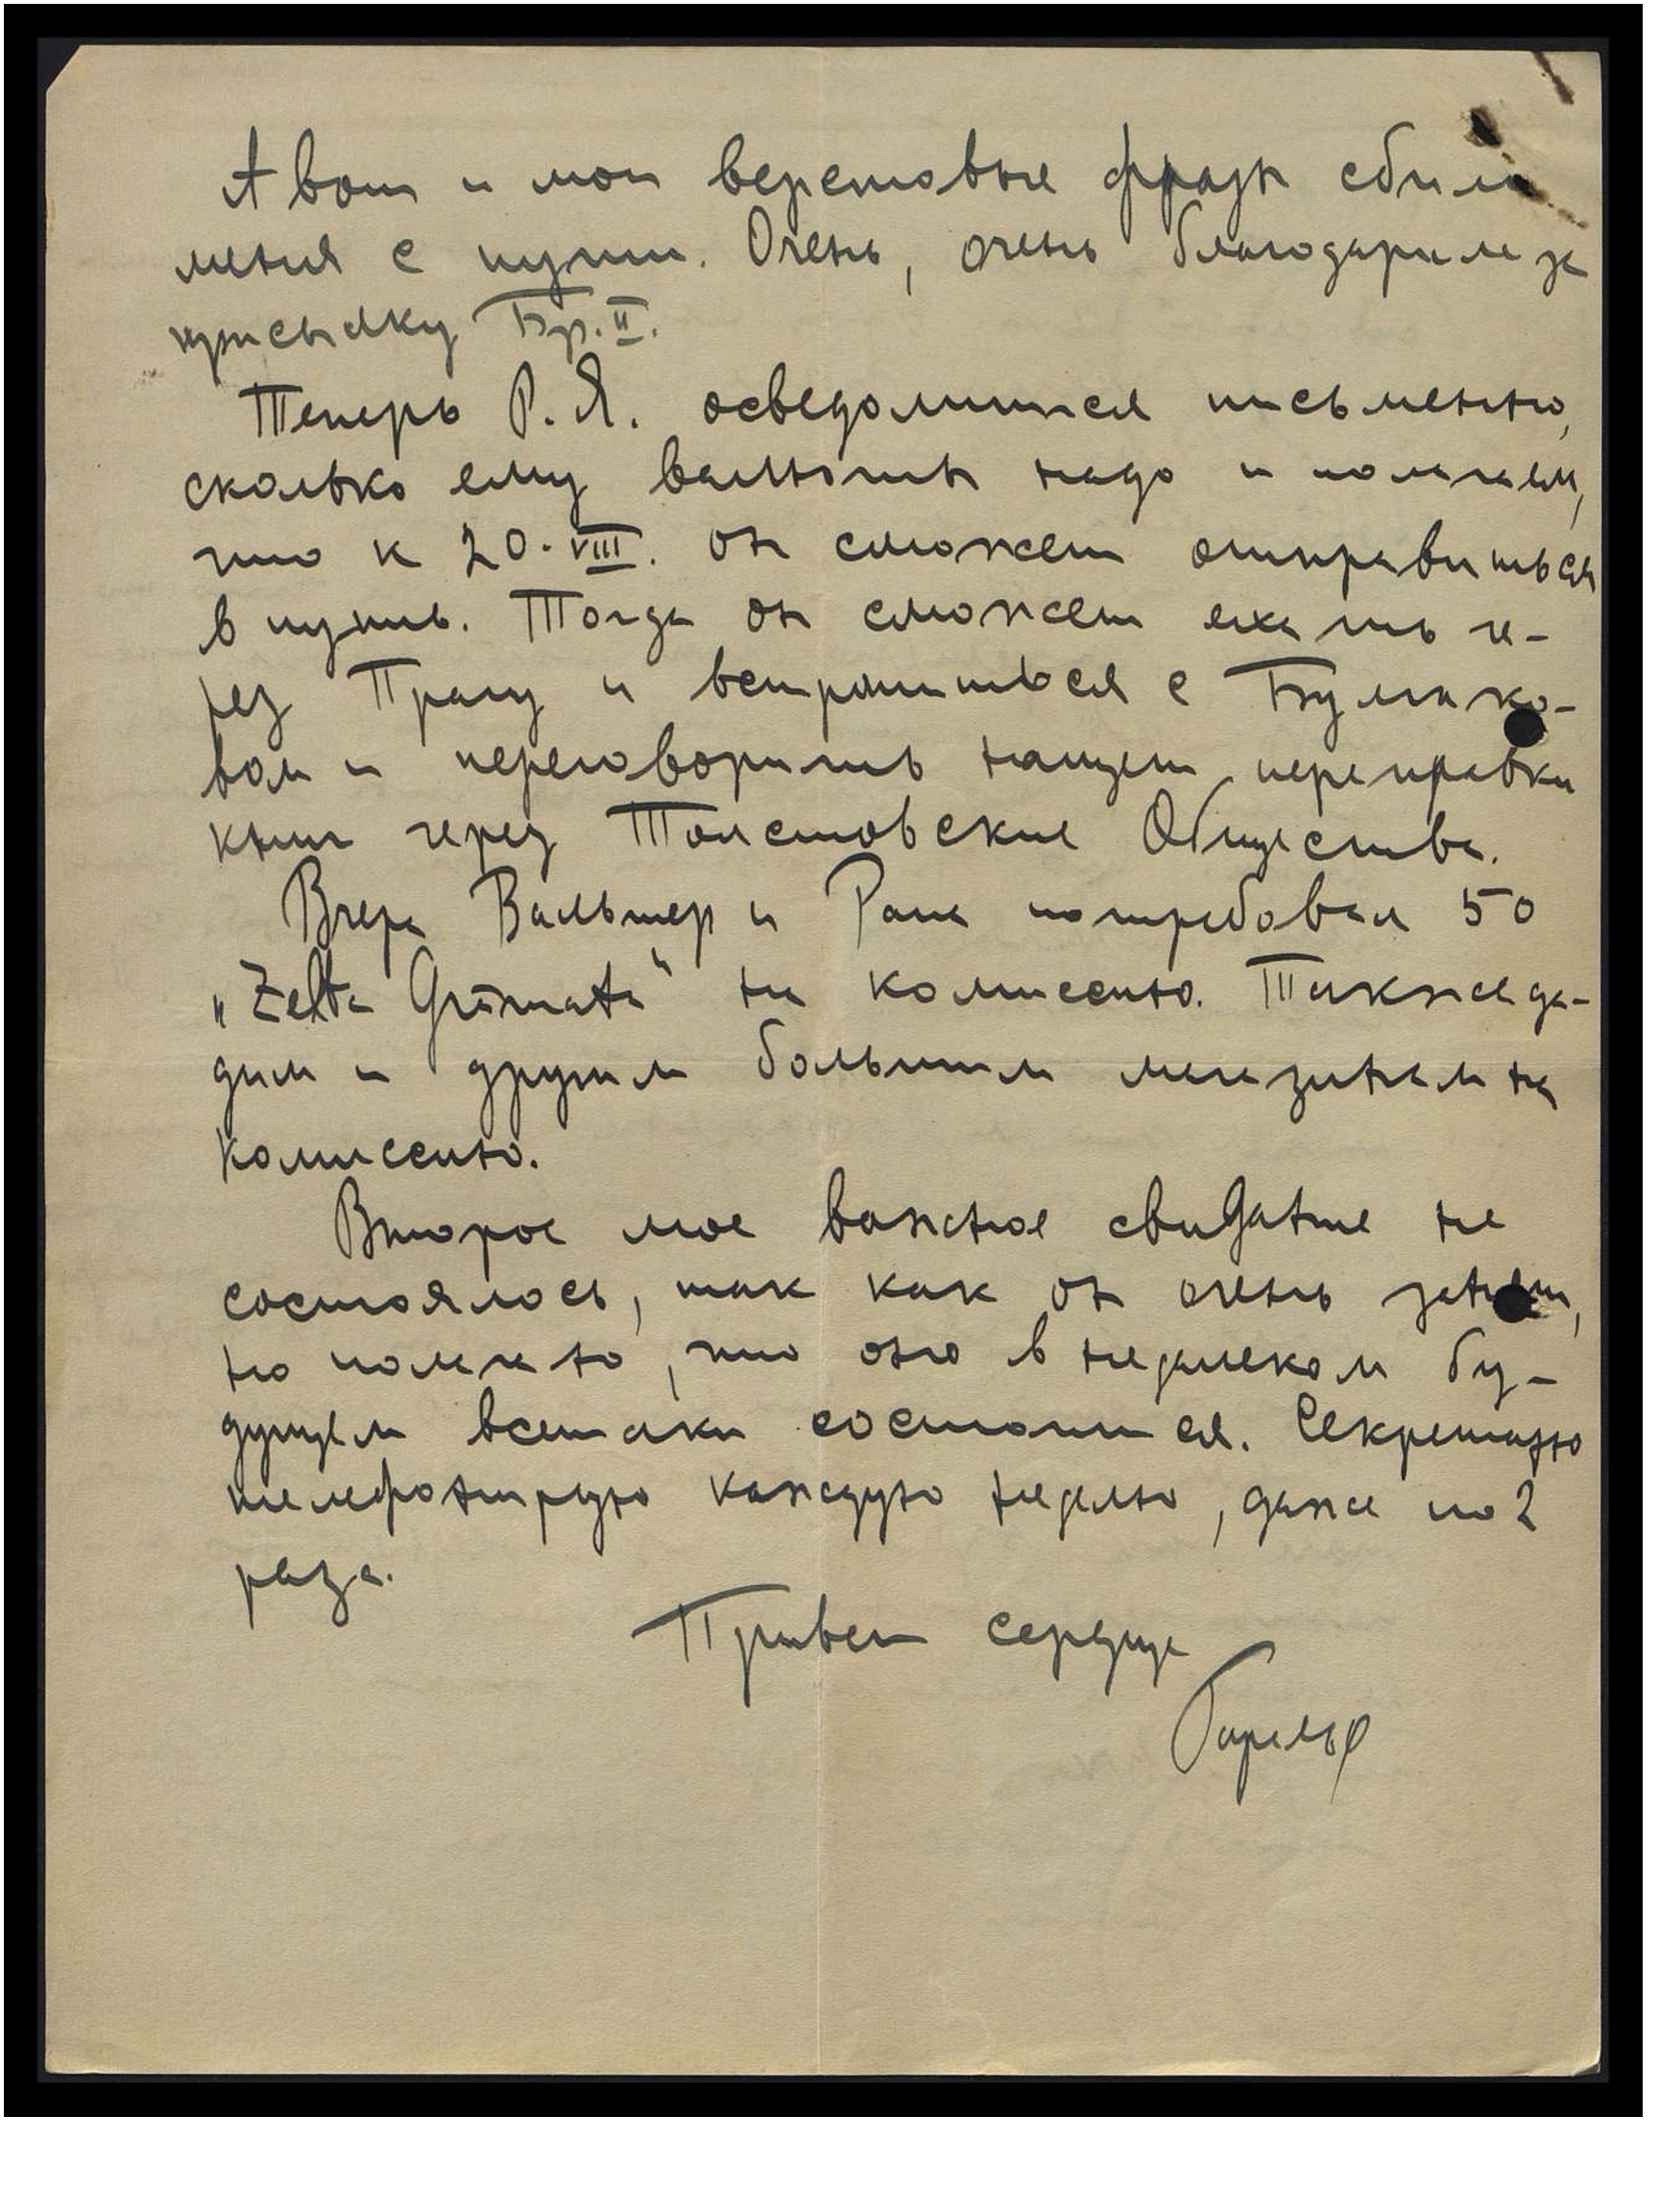 А вот и мои верстовые фразы сбили
меня с пути. Очень, очень благодарим за
присылку Бр. II.
Теперь Р. Я. осведомится письменно,
сколько ему валюты надо и полагаем,
что к 20. VIII. он сможет отправиться
в путь. Тогда он сможет ехать че-
рез Прагу и встретиться с Булгако-
вым и переговорить насчет переправки
книг через Толстовские Общества.
Вчера Вальтер и Рапа потребовал 50
„Zelta Grāmata“ на комиссию. Также да-
дим и другим большим магазинам на
комиссию.
Второе мое важное свидание не
состоялось, так как он очень занят,
но полагаю, что оно в недалеком бу-
дущем всетаки состоится. Секретарю
телефонирую каждую неделю, даже по 2
раза.
Привет сердца
Гаральд